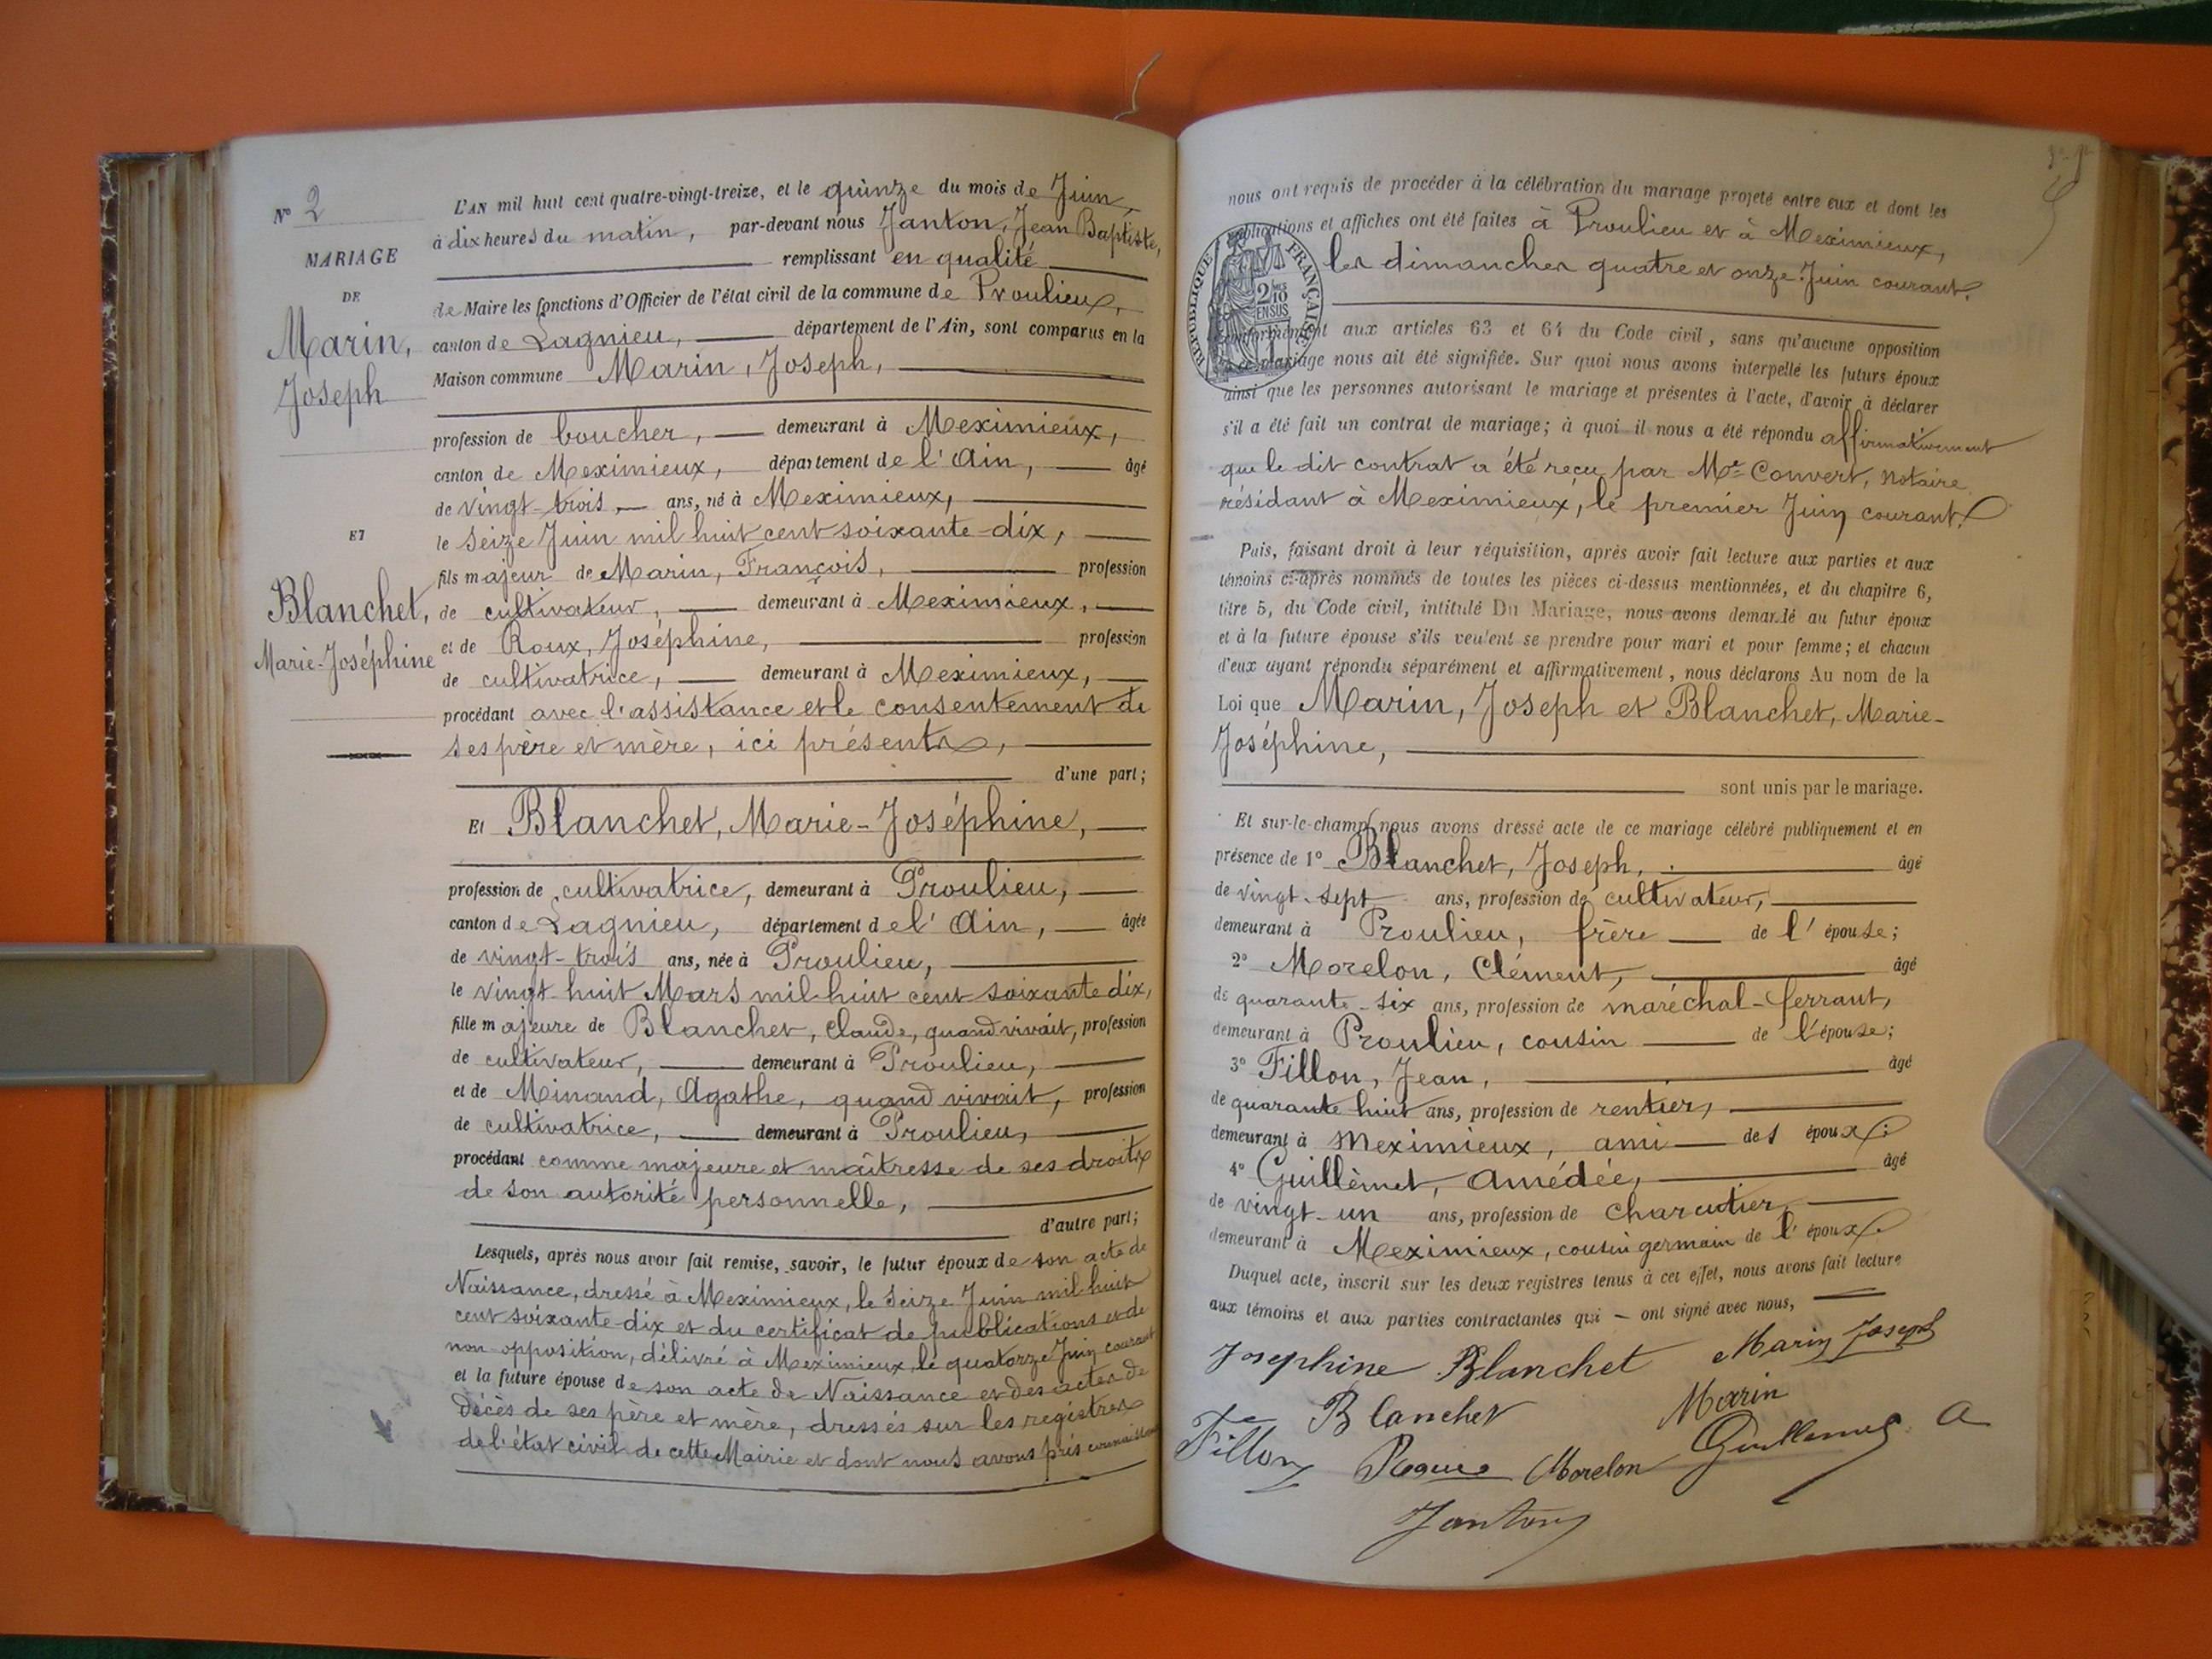 Nº 2
MARIAGE
DE
Marin,
Joseph
ET
Blanchet,
Marie-Joséphine
L'AN mil huit cent quatre-vingt-treize, et le quinze du mois de Juin,
à dix heures du matin, par-devant nous Janton, Jean Baptiste,
remplissant en qualité
de Maire les fonctions d'Officier de l'état civil de la commune de Proulieu,
canton de Lagnieu, département de l'Ain, sont comparus en la
Maison commune Marin, Joseph,
profession de boucher, demeurant à Meximieux,
canton de Meximieux, département de l'Ain, âgé
de vingt-trois ans, né à Meximieux,
le Seize Juin mil huit cent soixante-dix,
fils majeur de Marin, François, profession
de cultivateur, demeurant à Meximieux,
et de Roux, Joséphine, profession
de cultivatrice, demeurant à Meximieux,
procédant avec l'assistance et le consentement de
ses père et mère, ici présents,
d'une part;
Et Blanchet, Marie-Joséphine,
profession de cultivatrice, demeurant à Proulieu,
canton de Lagnieu, département de l'Ain, âgée
de vingt-trois ans, née à Proulieu,
le vingt-huit Mars mil huit cent soixante dix,
fille majeure de Blanchet, Claude, quand vivait, profession
de cultivateur, demeurant à Proulieu,
et de Minand, Agathe, quand vivait, profession
de cultivatrice, demeurant à Proulieu,
procédant comme majeure et maîtresse de ses droits
de son autorité personnelle,
d'autre part;
Lesquels, après nous avoir fait remise, savoir, le futur époux de son acte de
Naissance, dressé à Meximieux, le Seize Juin mil huit
cent soixante-dix et du certificat de publications et de
non-opposition, délivré à Meximieux, le quatorze Juin courant
et la future épouse de son acte de Naissance et des actes de
décès de ses père et mère, dressés sur les registres
de l'état civil de cette Mairie et dont nous avons pris connaissance
nous ont requis de procéder à la célébration du mariage projeté entre eux et dont les
publications et affiches ont été faites à Proulieu et à Meximieux,
les dimanches quatre et onze Juin courant.
RÉPUBLIQUE FRANÇAISE
2/10
EN SUS
conformément aux articles 63 et 64 du Code civil, sans qu'aucune opposition
à ce mariage nous ait été signifiée. Sur quoi nous avons interpellé les futurs époux
ainsi que les personnes autorisant le mariage et présentes à l'acte, d'avoir à déclarer
s'il a été fait un contrat de mariage; à quoi il nous a été répondu affirmativement
que le dit contrat a été reçu par Me Convert, notaire
résidant à Meximieux, le premier Juin courant.
Puis, faisant droit à leur réquisition, après avoir fait lecture aux parties et aux
témoins ci-après nommés de toutes les pièces ci-dessus mentionnées, et du chapitre 6,
titre 5, du Code civil, intitulé Du Mariage, nous avons demandé au futur époux
et à la future épouse s'ils veulent se prendre pour mari et pour femme; et chacun
d'eux ayant répondu séparément et affirmativement, nous déclarons Au nom de la
Loi que Marin, Joseph et Blanchet, Marie-
Joséphine,
sont unis par le mariage.
Et sur-le-champ nous avons dressé acte de ce mariage célébré publiquement et en
présence de 1º Blanchet, Joseph, âgé
de vingt-sept ans, profession de cultivateur,
demeurant à Proulieu, frère de l'épouse;
2º Morelon, Clément, âgé
de quarante-six ans, profession de maréchal-ferrant,
demeurant à Proulieu, cousin de l'épouse;
3º Fillon, Jean, âgé
de quarante huit ans, profession de rentier,
demeurant à Meximieux, ami des époux;
4º Guillèmet, Amédée, âgé
de vingt-un ans, profession de charcutier,
demeurant à Meximieux, cousin germain de l'époux.
Duquel acte, inscrit sur les deux registres tenus à cet effet, nous avons fait lecture
aux témoins et aux parties contractantes qui ont signé avec nous,
Josephine Blanchet Marin Joseph
Blanchet Marin
Fillon Morelon Guillemet A
Janton